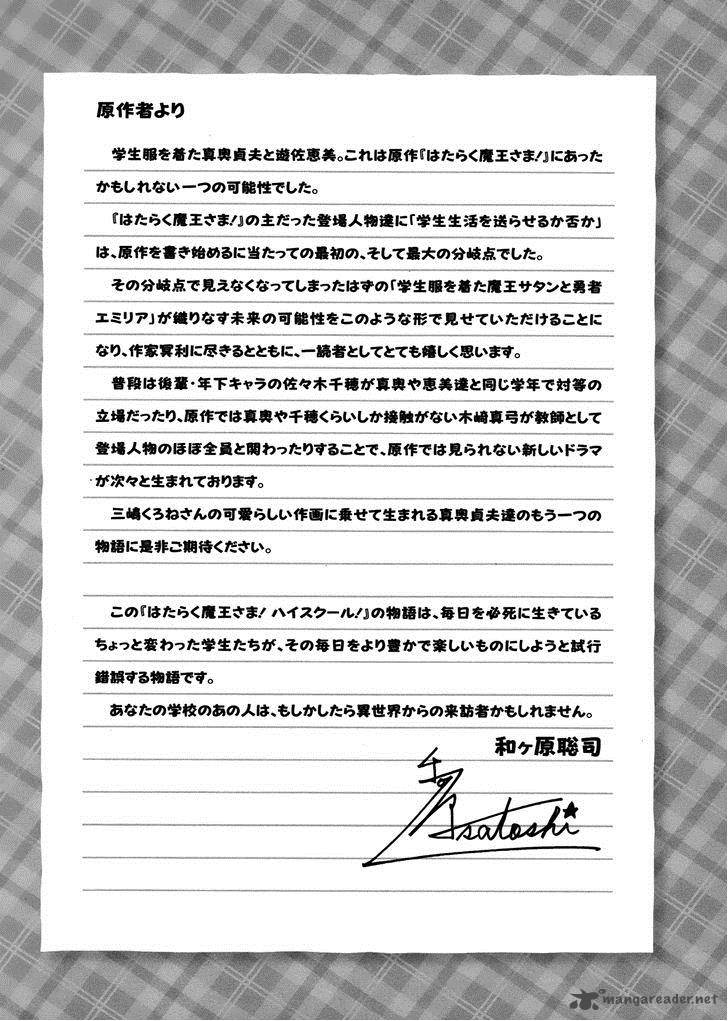 原作者より
学生服を着た真奥貞夫と遊佐恵美。これは原作『はたらく魔王さま！』にあった
かもしれない一つの可能性でした。
『はたらく魔王さま！』の主だった登場人物達に「学生生活を送らせるか否か」
は、原作を書き始めるに当たっての最初の、そして最大の分岐点でした。
その分岐点で見えなくなってしまったはずの「学生服を着た魔王サタンと勇者
エミリア」が織りなす未来の可能性をこのような形で見せていただけることに
なり、作家冥利に尽きるとともに、一読者としてとても嬉しく思います。
普段は後輩・年下キャラの佐々木千穂が真奥や恵美達と同じ学年で対等の
立場だったり、原作では真奥や千穂くらいしか接触がない木崎真弓が教師として
登場人物のほぼ全員と関わったりすることで、原作では見られない新しいドラマ
が次々と生まれております。
三嶋くろねさんの可愛らしい作画に乗せて生まれる真奥貞夫達のもう一つの
物語に是非ご期待ください。
この『はたらく魔王さま！ ハイスクール！』の物語は、毎日を必死に生きている
ちょっと変わった学生たちが、その毎日をより豊かで楽しいものにしようと試行
錯誤する物語です。
あなたの学校のあの人は、もしかしたら異世界からの来訪者かもしれません。
和ヶ原聡司
satoshi
mangareader.net